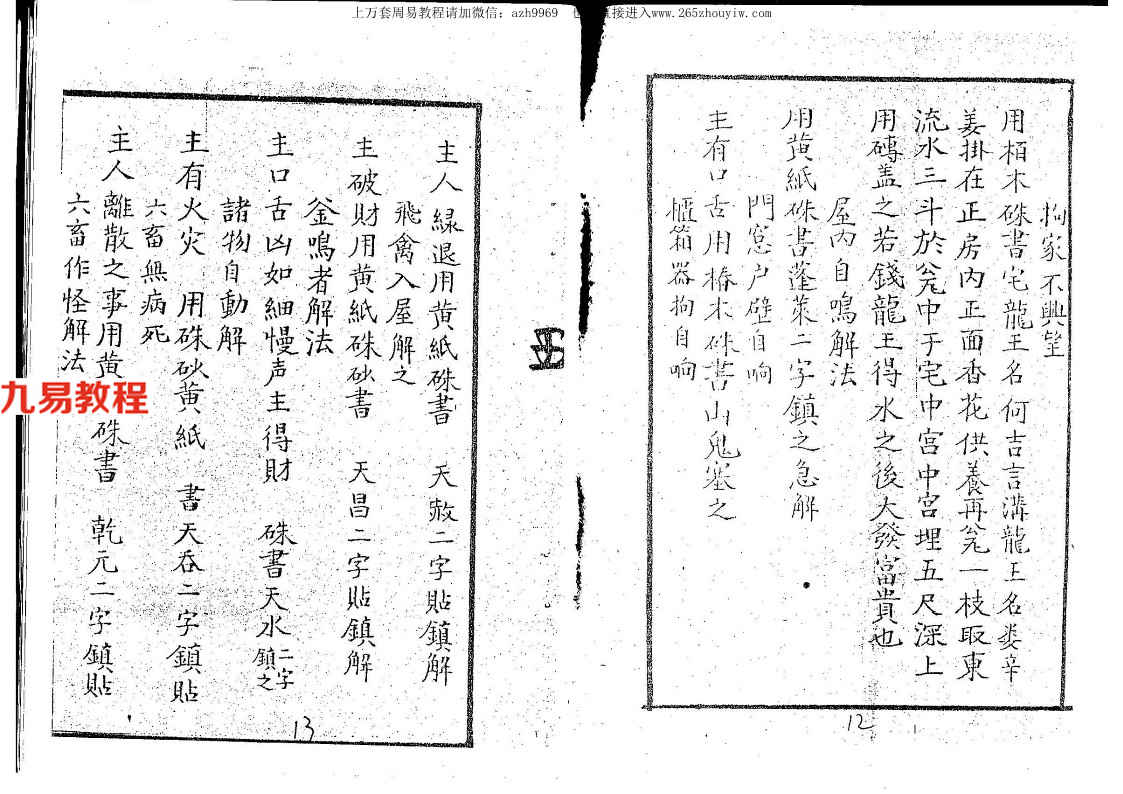 上万套周易教程请加微信：azh9969 直接进入www.265zhouyiw.com
拘家不興望
用栢木硃書宅龍王名何吉言溝龍王名娄辛
姜掛在正房内正面香花供養再瓮一枝取東
流水三斗於瓮中于宅中宫中宫埋五尺深上
用磚盖之若錢龍王得水之後大發富貴也
屋内自鳴解法
用黄紙硃書蓬萊二字鎮之急解
門窓户壁自响
主有口舌用椿木硃書山鬼塞之
櫃箱器拘自响
12
主人緑退用黄紙硃書 天赦二字貼鎮解
飛禽入屋解之
主破財用黄紙硃砂書 天昌二字貼鎮解
釜鳴者解法
主口舌凶如細慢声主得財 硃書天水二字鎮之
諸物自動解
主有火灾 用硃砂黄紙 書天吞二字鎮貼
六畜無病死
主人離散之事用黄 硃書 乾元二字鎮貼
六畜作怪解法
13
九易教程